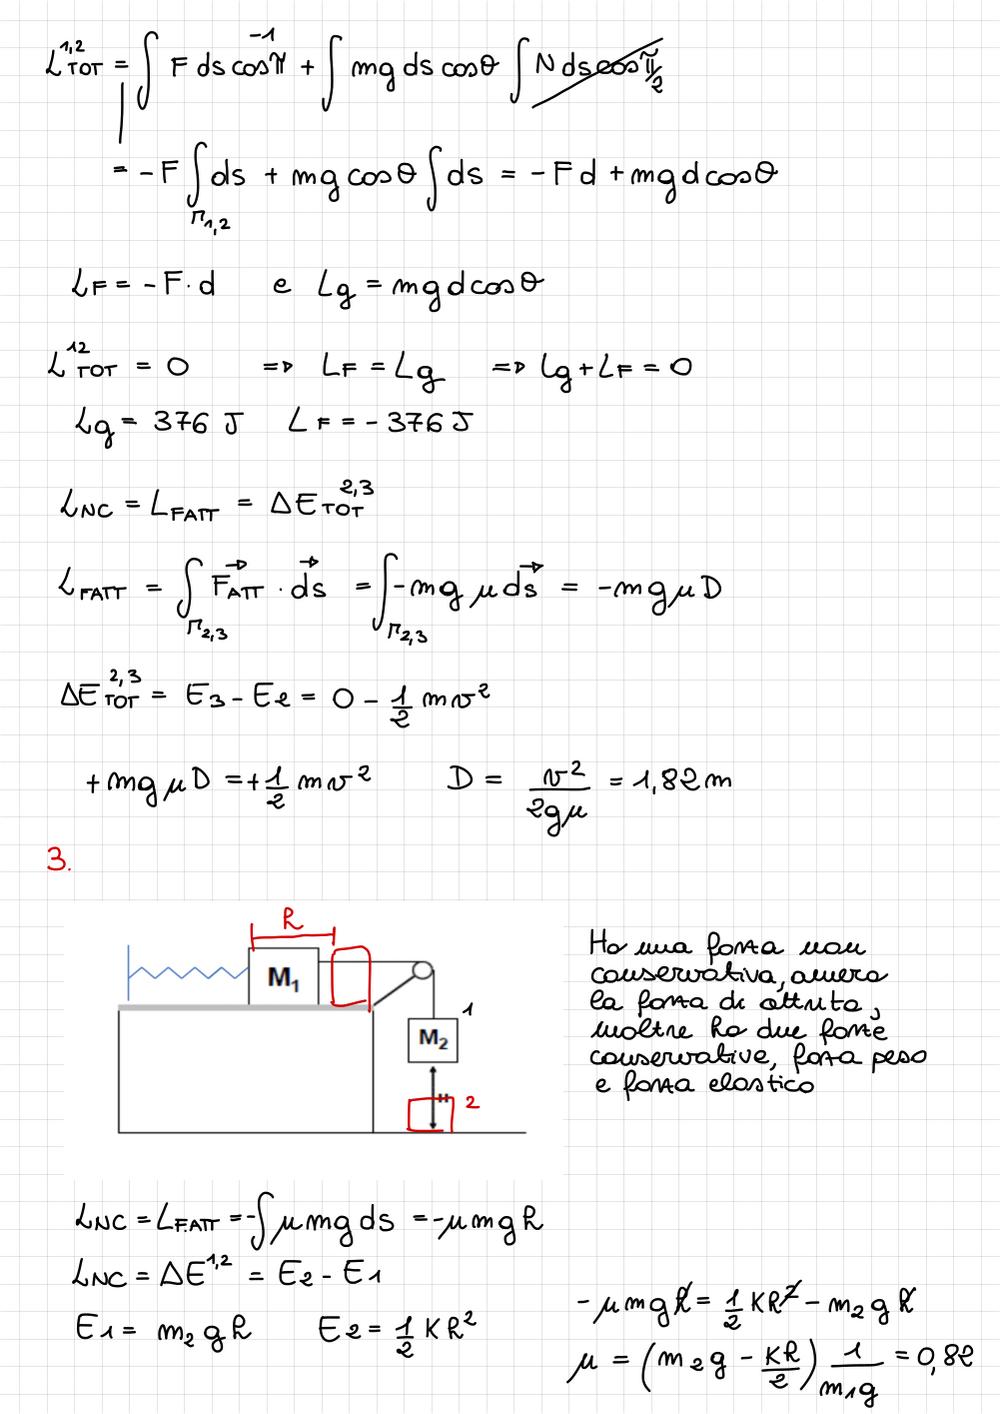 L^{1,2}_{TOT} = ∫ F ds cosπ^{-1} + ∫ mg ds cosθ ∫ N ds cos π/2
= -F ∫_{Γ1,2} ds + mg cosθ ∫ ds = -Fd + mgd cosθ
L_F = -F·d e Lg = mgd cosθ
L^{12}_{TOT} = 0 => L_F = Lg => Lg + L_F = 0
Lg = 376 J L_F = -376 J
L_{NC} = L_{FATT} = ΔE^{2,3}_{TOT}
L_{FATT} = ∫_{Γ2,3} F⃗_{ATT} · ds⃗ = ∫_{Γ2,3} -mg μ ds⃗ = -mgμD
ΔE^{2,3}_{TOT} = E3 - E2 = 0 - 1/2 mv²
+mgμD = +1/2 mv² D = v²/2gμ = 1,82 m
3.
h
M₁
1
M₂
H
2
Ho una forza non
conservativa, ovvero
la forza di attrito,
inoltre ho due forze
conservative, forza peso
e forza elastica
L_{NC} = L_{F.ATT} = -∫ μmg ds = -μmgh
L_{NC} = ΔE^{1,2} = E2 - E1
E1 = m₂gh E2 = 1/2 Kh²
-μmgh = 1/2 Kh² - m₂gh
μ = (m₂g - Kh/2) 1/m₁g = 0,82